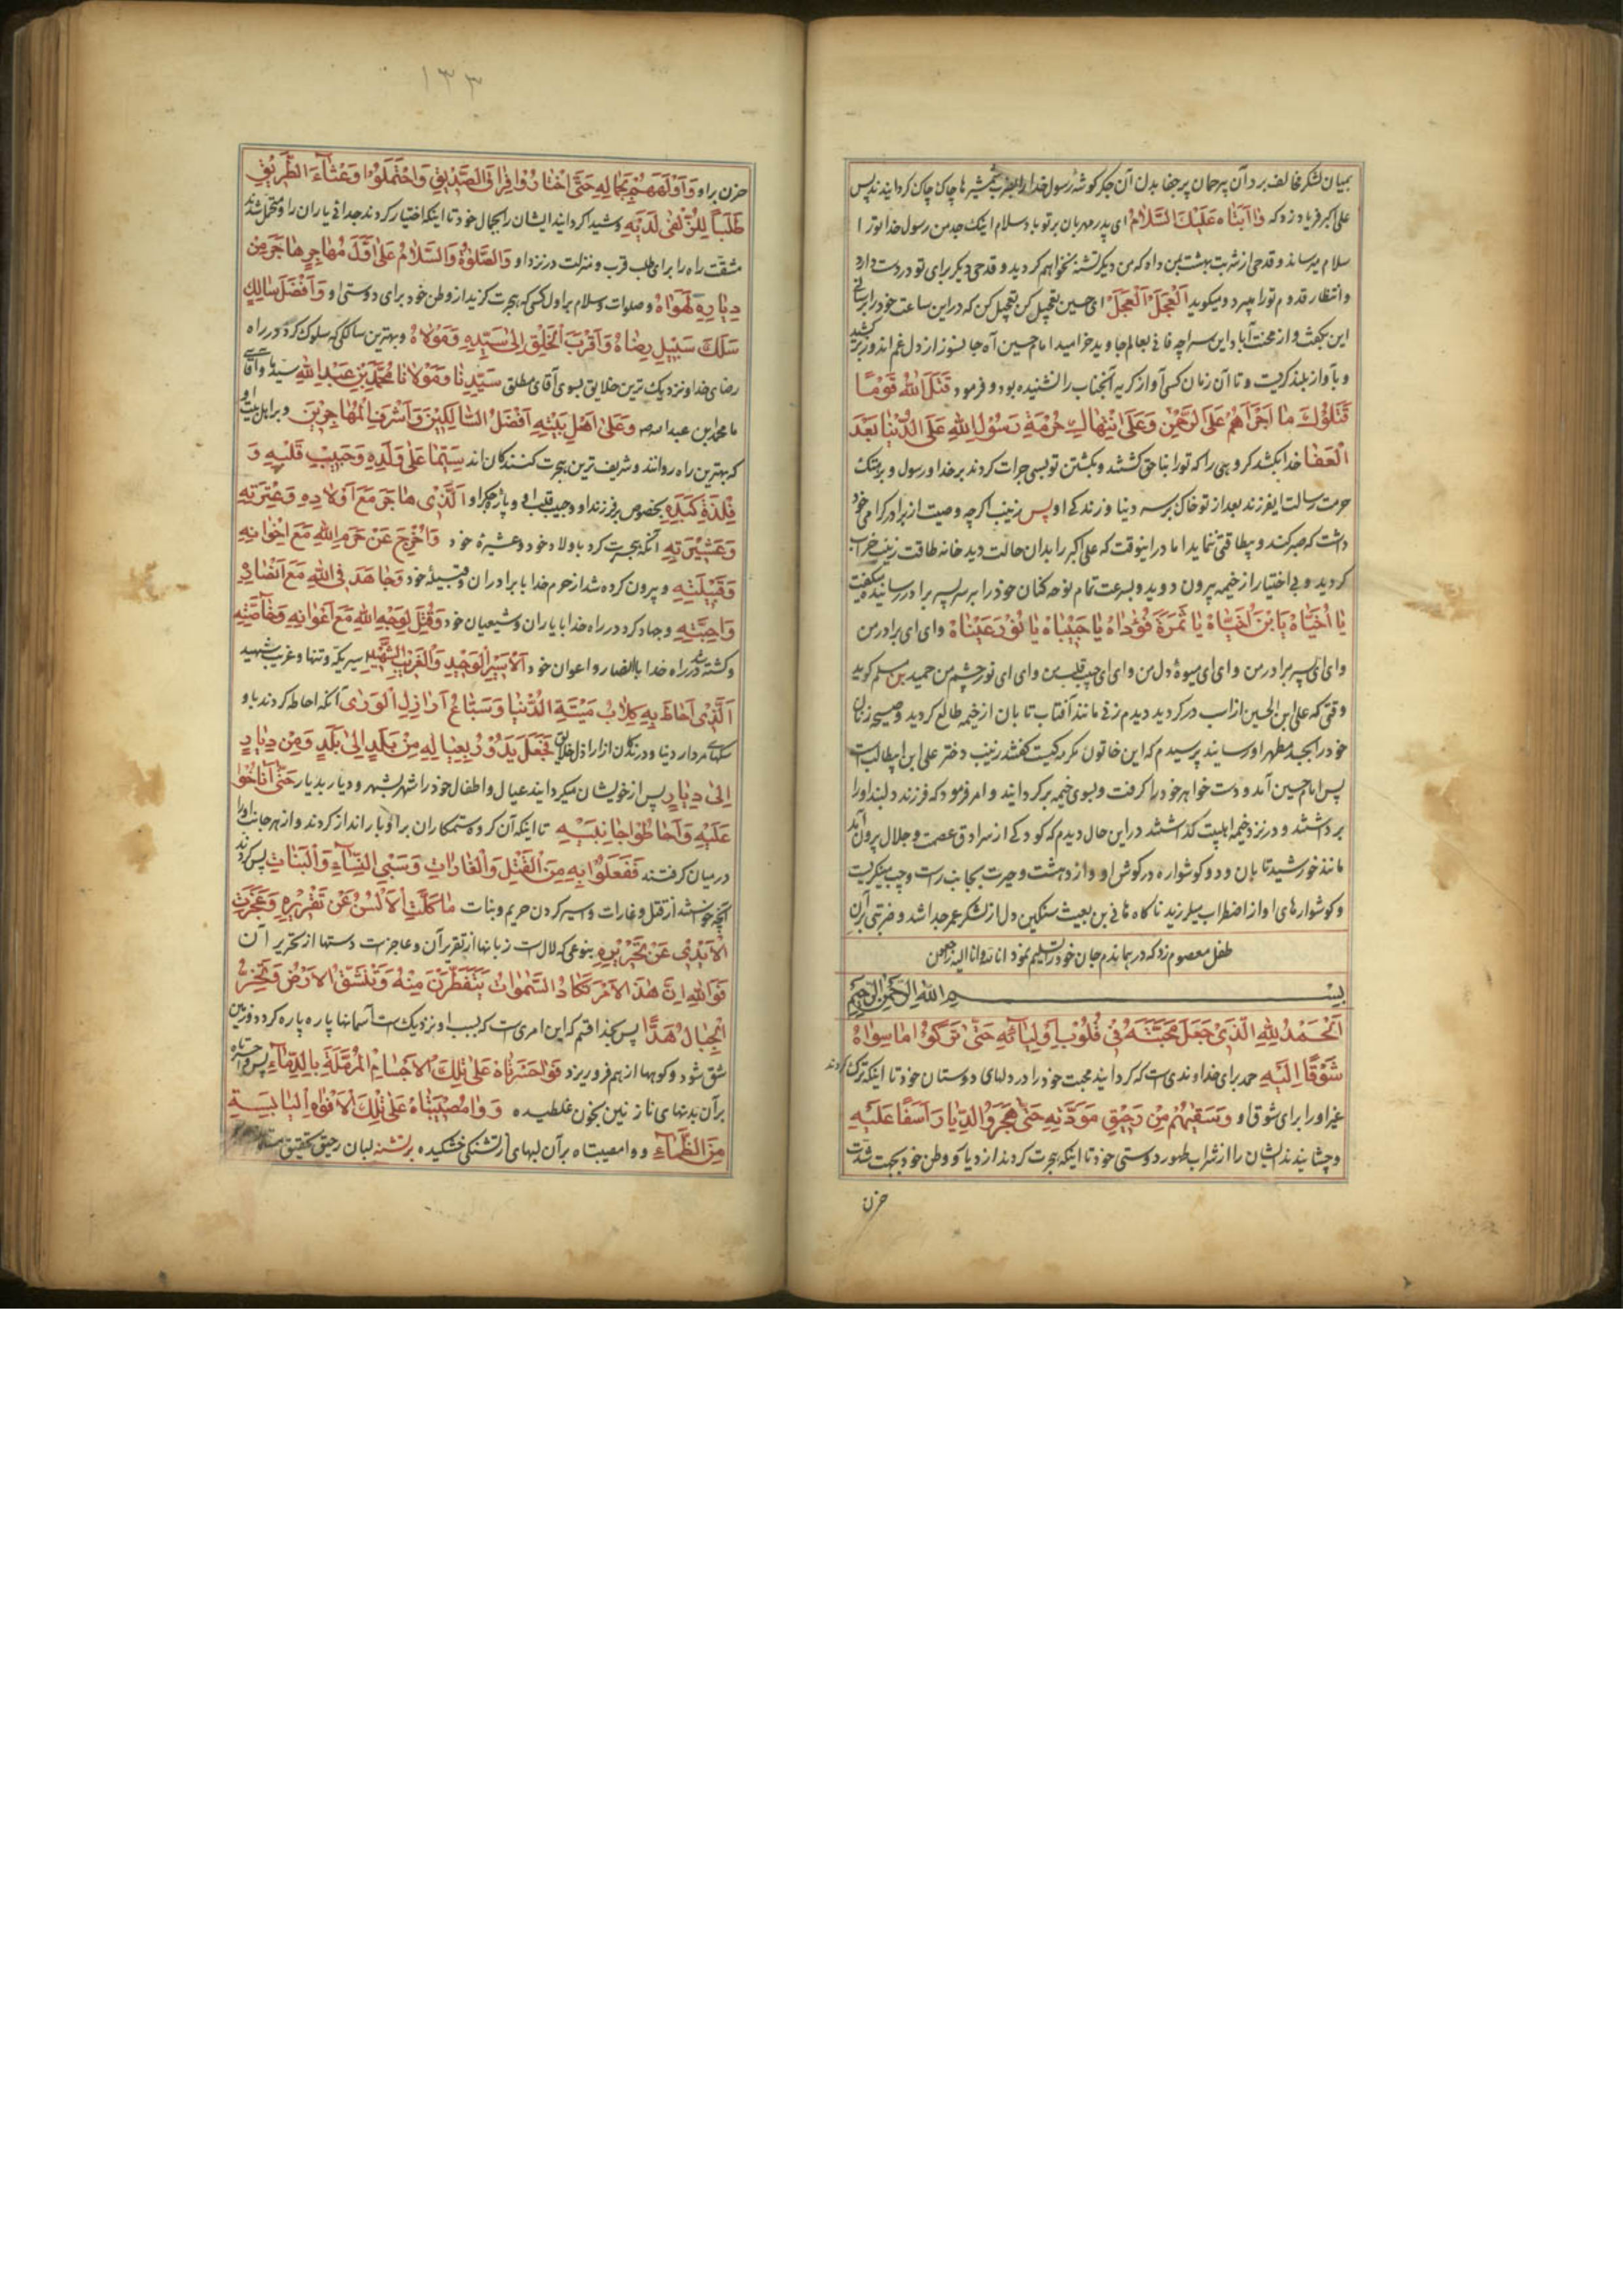 بمیان لشکر مخالف برد آن بیرحمان پرجفا بدن آن جگر کوشهٔ رسول خدا را بضرب شمشیرها چاک چاک کردانیدند پس
علی اکبر فریاد زد که وَا اَبَتَاه عَلَیْكَ السَّلَامُ ای پدر مهربان بر تو باد سلام اینک جد من رسول خدا تو را
سلام میرساند و قدحی از شربت بهشت بمن داد که من دیگر تشنه نخواهم کردید و قدحی دیگر برای تو در دست دارد
و انتظار قدوم تو را میبرد و میکوید اَلْعَجَلَ اَلْعَجَلَ ای حسین تعجیل کن تعجیل کن که در این ساعت خود را برسانی
این بکفت و از محنت آباد این سراچه فانی بعالم جاوید خرامید امام حسین آه جانسوز از دل غم اندوز برکشید
و بآواز بلند کریست و تا آن زمان کسی آواز کریه آنجناب را نشنیده بود و فرمود قَتَلَ اللّٰهُ قَوْمًا
قَتَلُوكَ مٰا اَجْرَاَهُمْ عَلَی الرَّحْمٰنِ وَعَلَی انْتِهٰاكِ حُرْمَةِ رَسُولِ اللّٰهِ عَلَی الدُّنْیٰا بَعْدَكَ
الْعَفٰا خدا بکشد کروهی را که تو را بناحق کشتند و بکشتن تو بسی جرات کردند بر خدا و رسول و بر هتک
حرمت رسالت ایفرزند بعد از تو خاک بر سر دنیا و زندکی او پس زینب اکرچه وصیت از برادر کرامی خود
داشت که صبر کند و بیطاقتی ننماید اما در اینوقت که علی اکبر را بدان حالت دید خانه طاقت زینب خراب
کردید و بی اختیار از خیمه بیرون دوید و بسرعت تمام نوحه کنان خود را بر سر پسر برادر رسانید و میکفت
یٰا اُخَیّٰاهْ یَابْنَ اُخَیّٰاهْ یٰا ثَمَرَةَ فُؤٰادٰاهْ یٰا حَبِیْبٰاهْ یٰا نُوْرَ عَیْنٰاهْ وای ای برادر من
وای ای پسر برادر من وای ای میوهٔ دل من وای ای حبیب قلب من وای ای نور چشم من حمید بن مسلم کوید
وقتی که علی ابن الحسین از اسب درکردید دیدم زنی مانند آفتاب تابان از خیمه طالع کردید و صیحه زنان
خود را بجسد مطهر او رسانید پرسیدم که این خاتون مکرمه کیست کفتند زینب دختر علی ابن ابیطالب است
پس امام حسین آمد و دست خواهر خود را کرفت و بسوی خیمه برکردانید و امر فرمود که فرزند دلبند او را
برداشتند و در نزد خیمه اهلبیت کذاشتند در این حال دیدم که کودکی از سرادق عصمت و جلال بیرون آمد
مانند خورشید تابان و دو کوشواره در کوش او و از دهشت و حیرت بجانب راست و چپ مینکریست
و کوشوارهای او از اضطراب میلرزید ناکاه هانی بن بعیث سنکین دل از لشکر عمر جدا شد و ضربتی بر آن
طفل معصوم زد که در همان دم جان خود را تسلیم نمود انا لله و انا الیه راجعون
بسم الله الرحمن الرحیم
اَلْحَمْدُ لِلّٰهِ الَّذِیْ جَعَلَ مَحَبَّتَهُ فِیْ قُلُوْبِ اَوْلِیٰائِهِ حَتّٰی تَرَكُوْا مٰا سِوٰاهُ
شَوْقًا اِلَیْهِ حمد برای خداوندی است که کردانید محبت خود را در دلهای دوستان خود تا اینکه ترک کردند
غیر او را برای شوق او وَسَقٰیهُمْ مِنْ رَحِیْقِ مَوَدَّتِهِ حَتّٰی هَجَرُوا الدِّیٰارَ اَسَفًا عَلَیْهِ
و چشانیدند ایشان را از شراب طهور دوستی خود تا اینکه هجرت کردند از دیار و وطن خود بجهت شدّت
حزن
۱۳۳
حزن بر او وَ اَوْلَهَهُمْ بِجَمٰالِهِ حَتّٰی اخْتٰارُوا فِرٰاقَ الصَّدِیْقِ وَ احْتَمَلُوْا وَعْثٰآءَ الطَّرِیْقِ
طَلَبًا لِلزُّلْفٰی لَدَیْهِ و شیدا کردانید ایشان را بجمال خود تا اینکه اختیار کردند جدائی یاران را و متحمل شدند
مشقت راه را برای طلب قرب و منزلت در نزد او وَ الصَّلٰوةُ وَ السَّلَامُ عَلٰی اَوَّلِ مُهٰاجِرٍ هٰاجَرَ مِنْ
دِیٰارِهِ لِهَوٰاهُ و صلوات و سلام بر اول کسی که هجرت کزید از وطن خود برای دوستی او وَ اَفْضَلَ سٰالِكٍ
سَلَكَ سَبِیْلَ رِضٰاهُ وَ اَقْرَبَ الْخَلْقِ اِلٰی سَیِّدِهِ وَ مَوْلَاهُ و بهترین سالکی که سلوک کرد در راه
رضای خدا و نزدیک ترین خلایق بسوی آقای مطلق سَیِّدِنٰا وَ مَوْلٰانٰا مُحَمَّدِ بْنِ عَبْدِ اللّٰهِ سید ما و آقای
ما محمد ابن عبدالله وَ عَلٰی اَهْلِ بَیْتِهِ اَفْضَلِ السّٰالِكِیْنَ وَ اَشْرَفِ الْمُهٰاجِرِیْنَ و بر اهل بیت او
که بهترین راه روانند و شریف ترین هجرت کنندکان اند سِیَّمٰا عَلٰی وَلَدِهِ وَ حَبِیْبِ قَلْبِهِ وَ
فِلْذَةِ كَبِدِهِ بخصوص بر فرزند او و حبیب قلب او و پارهٔ جکر او اَلَّذِیْ هٰاجَرَ مَعَ اَوْلَادِهِ وَ عِتْرَتِهِ
وَ عَشِیْرَتِهِ آنکه هجرت کرد با ولاد خود و عشیرهٔ خود وَ اُخْرِجَ عَنْ حَرَمِ اللّٰهِ مَعَ اِخْوٰانِهِ
وَ قَبِیْلَتِهِ و بیرون کرده شد از حرم خدا با برادران و قبیلهٔ خود وَ جٰاهَدَ فِی اللّٰهِ مَعَ اَنْصٰارِهِ
وَ اَحِبَّتِهِ و جهاد کرد در راه خدا با یاران و شیعیان خود وَ قُتِلَ لِوَجْهِ اللّٰهِ مَعَ اَعْوٰانِهِ وَ خٰآصَّتِهِ
و کشته شد در راه خدا با انصار و اعوان خود اَلْاَسِیْرِ الْوَحِیْدِ وَ الْغَرِیْبِ الشَّهِیْدِ اسیر یکه و تنها و غریب شهید
اَلَّذِیْ اَحٰاطَ بِهِ كِلَابُ مَیْتَةِ الدُّنْیٰا وَ سِبٰاعُ اَرٰاذِلِ الْوَرٰی آنکه احاطه کردند باو
سکهای مردار دنیا و درندکان از اراذل خلایق فَجَعَلَ یَدُوْرُ بِعِیٰالِهِ مِنْ بَلَدٍ اِلٰی بَلَدٍ وَ مِنْ دِیٰارٍ
اِلٰی دِیٰارٍ پس از خویشان میکردانید عیال و اطفال خود را شهر بشهر و دیار بدیار حَتّٰی اَنٰاخُوْا
عَلَیْهِ وَ اَحٰاطُوْا جٰانِبَیْهِ تا اینکه آن کروه ستمکاران بر او بار انداز کردند و از هر جانب او را
در میان کرفتند فَفَعَلُوْا بِهِ مِنَ الْقَتْلِ وَ الْغٰارٰاتِ وَ سَبْیِ النِّسٰآءِ وَ الْبَنٰاتِ پس کردند
آنچه خواستند از قتل و غارات و اسیر کردن حریم و بنات مٰا كَلَّتِ الْاَلْسُنُ عَنْ تَقْرِیْرِهِ وَ عَجَزَتِ
الْاَیْدِیْ عَنْ تَحْرِیْرِهِ بنوعی که لال است زبانها از تقریر آن و عاجز است دستها از تحریر آن
فَوَاللّٰهِ اِنَّ هٰذَا الْاَمْرَ تَكٰادُ السَّمٰوٰاتُ یَتَفَطَّرْنَ مِنْهُ وَ تَنْشَقُّ الْاَرْضُ وَ تَخِرُّ
الْجِبٰالُ هَدًّا پس بخدا قسم که این امری است که بسبب او نزدیک است آسمانها پاره پاره کردد و زمین
شق شود و کوهها از هم فرو ریزد فَوٰا حَسْرَتٰاهْ عَلٰی تِلْكَ الْاَجْسٰامِ الْمُرَمَّلَةِ بِالدِّمٰآءِ پس واحسرتاه
بر آن بدنهای نازنین بخون غلطیده وَ وٰا مُصِیْبَتٰاهْ عَلٰی تِلْكَ الْاَفْوٰاهِ الْیٰابِسَةِ
مِنَ الظَّمٰآءِ و وا مصیبتاه بر آن لبهای از تشنکی خشکیده بر تشنه لبان رحیق تحقیق